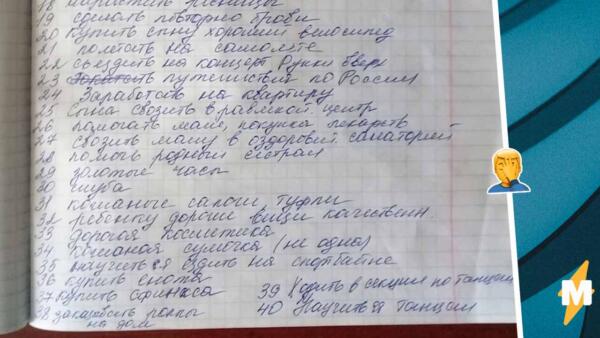 18 нарастить ресницы
19 сделать повторно брови
20 купить сыну хороший велосипед
21 полетать на самолете
22 съездить на концерт Руки вверх
23 путешествие по России
24 Заработать на квартиру
25 сына свозить в развлекат. центр
26 помогать маме, покупка лекарств
27 свозить маму в оздоровит. санаторий
28 помочь родным сестрам
29 золотые часы
30 шуба
31 кожаные сапоги, туфли
32 ребенку дорогие вещи качественн.
33 дорогая косметика
34 кожаная сумочка (не одна)
35 научиться ездить на сноуборде
36 купить енота
37 купить сфинкса
38 заказывать роллы
на дом
39 Ходить в секцию по танцам
40 Научиться танцам
М